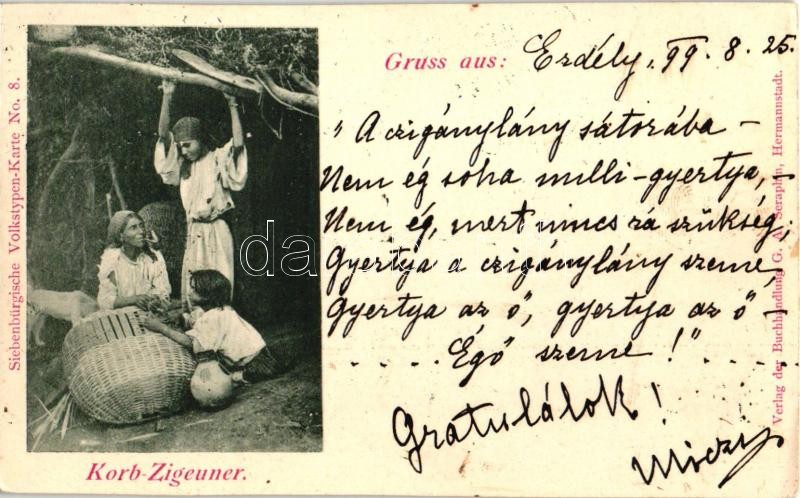 Siebenbürgische Volkstypen-Karte No. 8.
Gruss aus: Erdély, 99. 8. 25.
"A czigánylány sátorába –
Nem ég soha milli-gyertya,
Nem ég, mert nincs rá szükség,
Gyertya a czigánylány szeme,
Gyertya az ő, gyertya az ő –
. . . . . Égő szeme!" . . . . . .
Gratulálok!
Miczy
Korb-Zigeuner.
Verlag der Buchhandlung G. A. Seraphin, Hermannstadt.